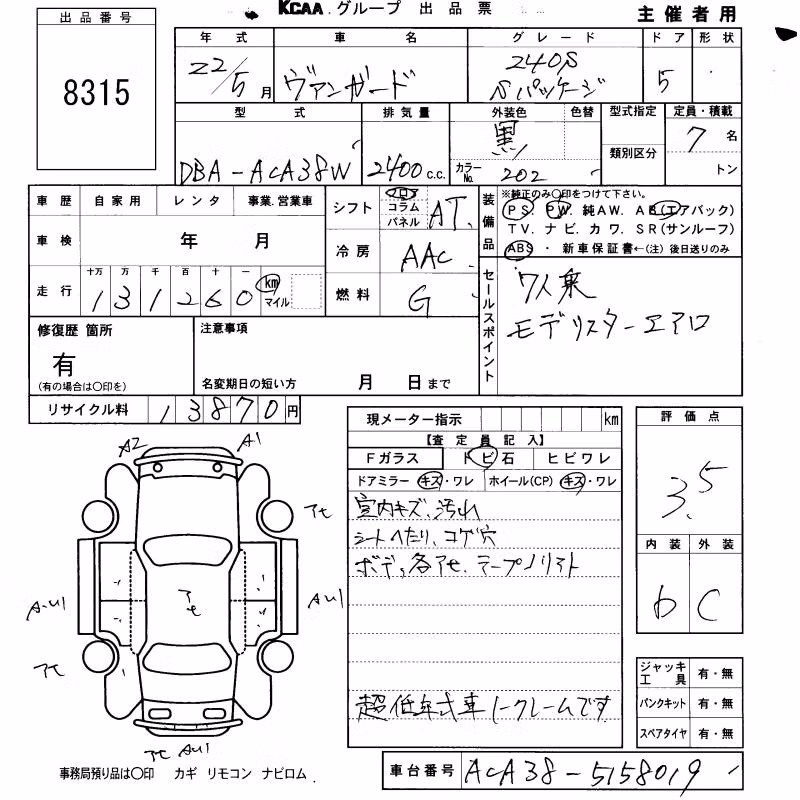 KCAA.グループ 出品票
主催者用
出品番号
8315
年式 車名 グレード ドア 形状
22/5月 ヴァンガード 240S Sパッケージ 5
型式 排気量 外装色 色替 型式指定 定員・積載
DBA-ACA38W 2400 c.c. 黒 カラーNo. 202 類別区分 7名
トン
車歴 自家用 レンタ 事業.営業車
車検 年 月
走行 十万 万 千 百 十 一
131260 km マイル
シフト フロア コラム パネル AT
冷房 AAC
燃料 G
装備品 ※純正のみ○印をつけて下さい。
PS. PW. 純AW. AB(エアバック)
TV. ナビ. カワ. SR(サンルーフ)
ABS ・ 新車保証書←(注) 後日送りのみ
セールスポイント
7人乗
モデリスターエアロ
修復歴 箇所
有
(有の場合は○印を)
注意事項
名変期日の短い方 月 日まで
リサイクル料 13870円
現メーター指示 km
【査定員記入】
Fガラス トビ石 ヒビワレ
ドアミラー キズ・ワレ ホイール(CP) キズ・ワレ
室内キズ、汚れ
シートへたり、コゲ穴
ボデー各アセ、テープノリアト
超低年式車ノークレームです
評価点
3.5
内装 外装
b C
ジャッキ工具 有・無
パンクキット 有・無
スペアタイヤ 有・無
A2 A1
アセ
AU1 アセ AU1
アセ
アセ AU1
事務局預り品は○印 カギ リモコン ナビロム.
車台番号 ACA38-5158019